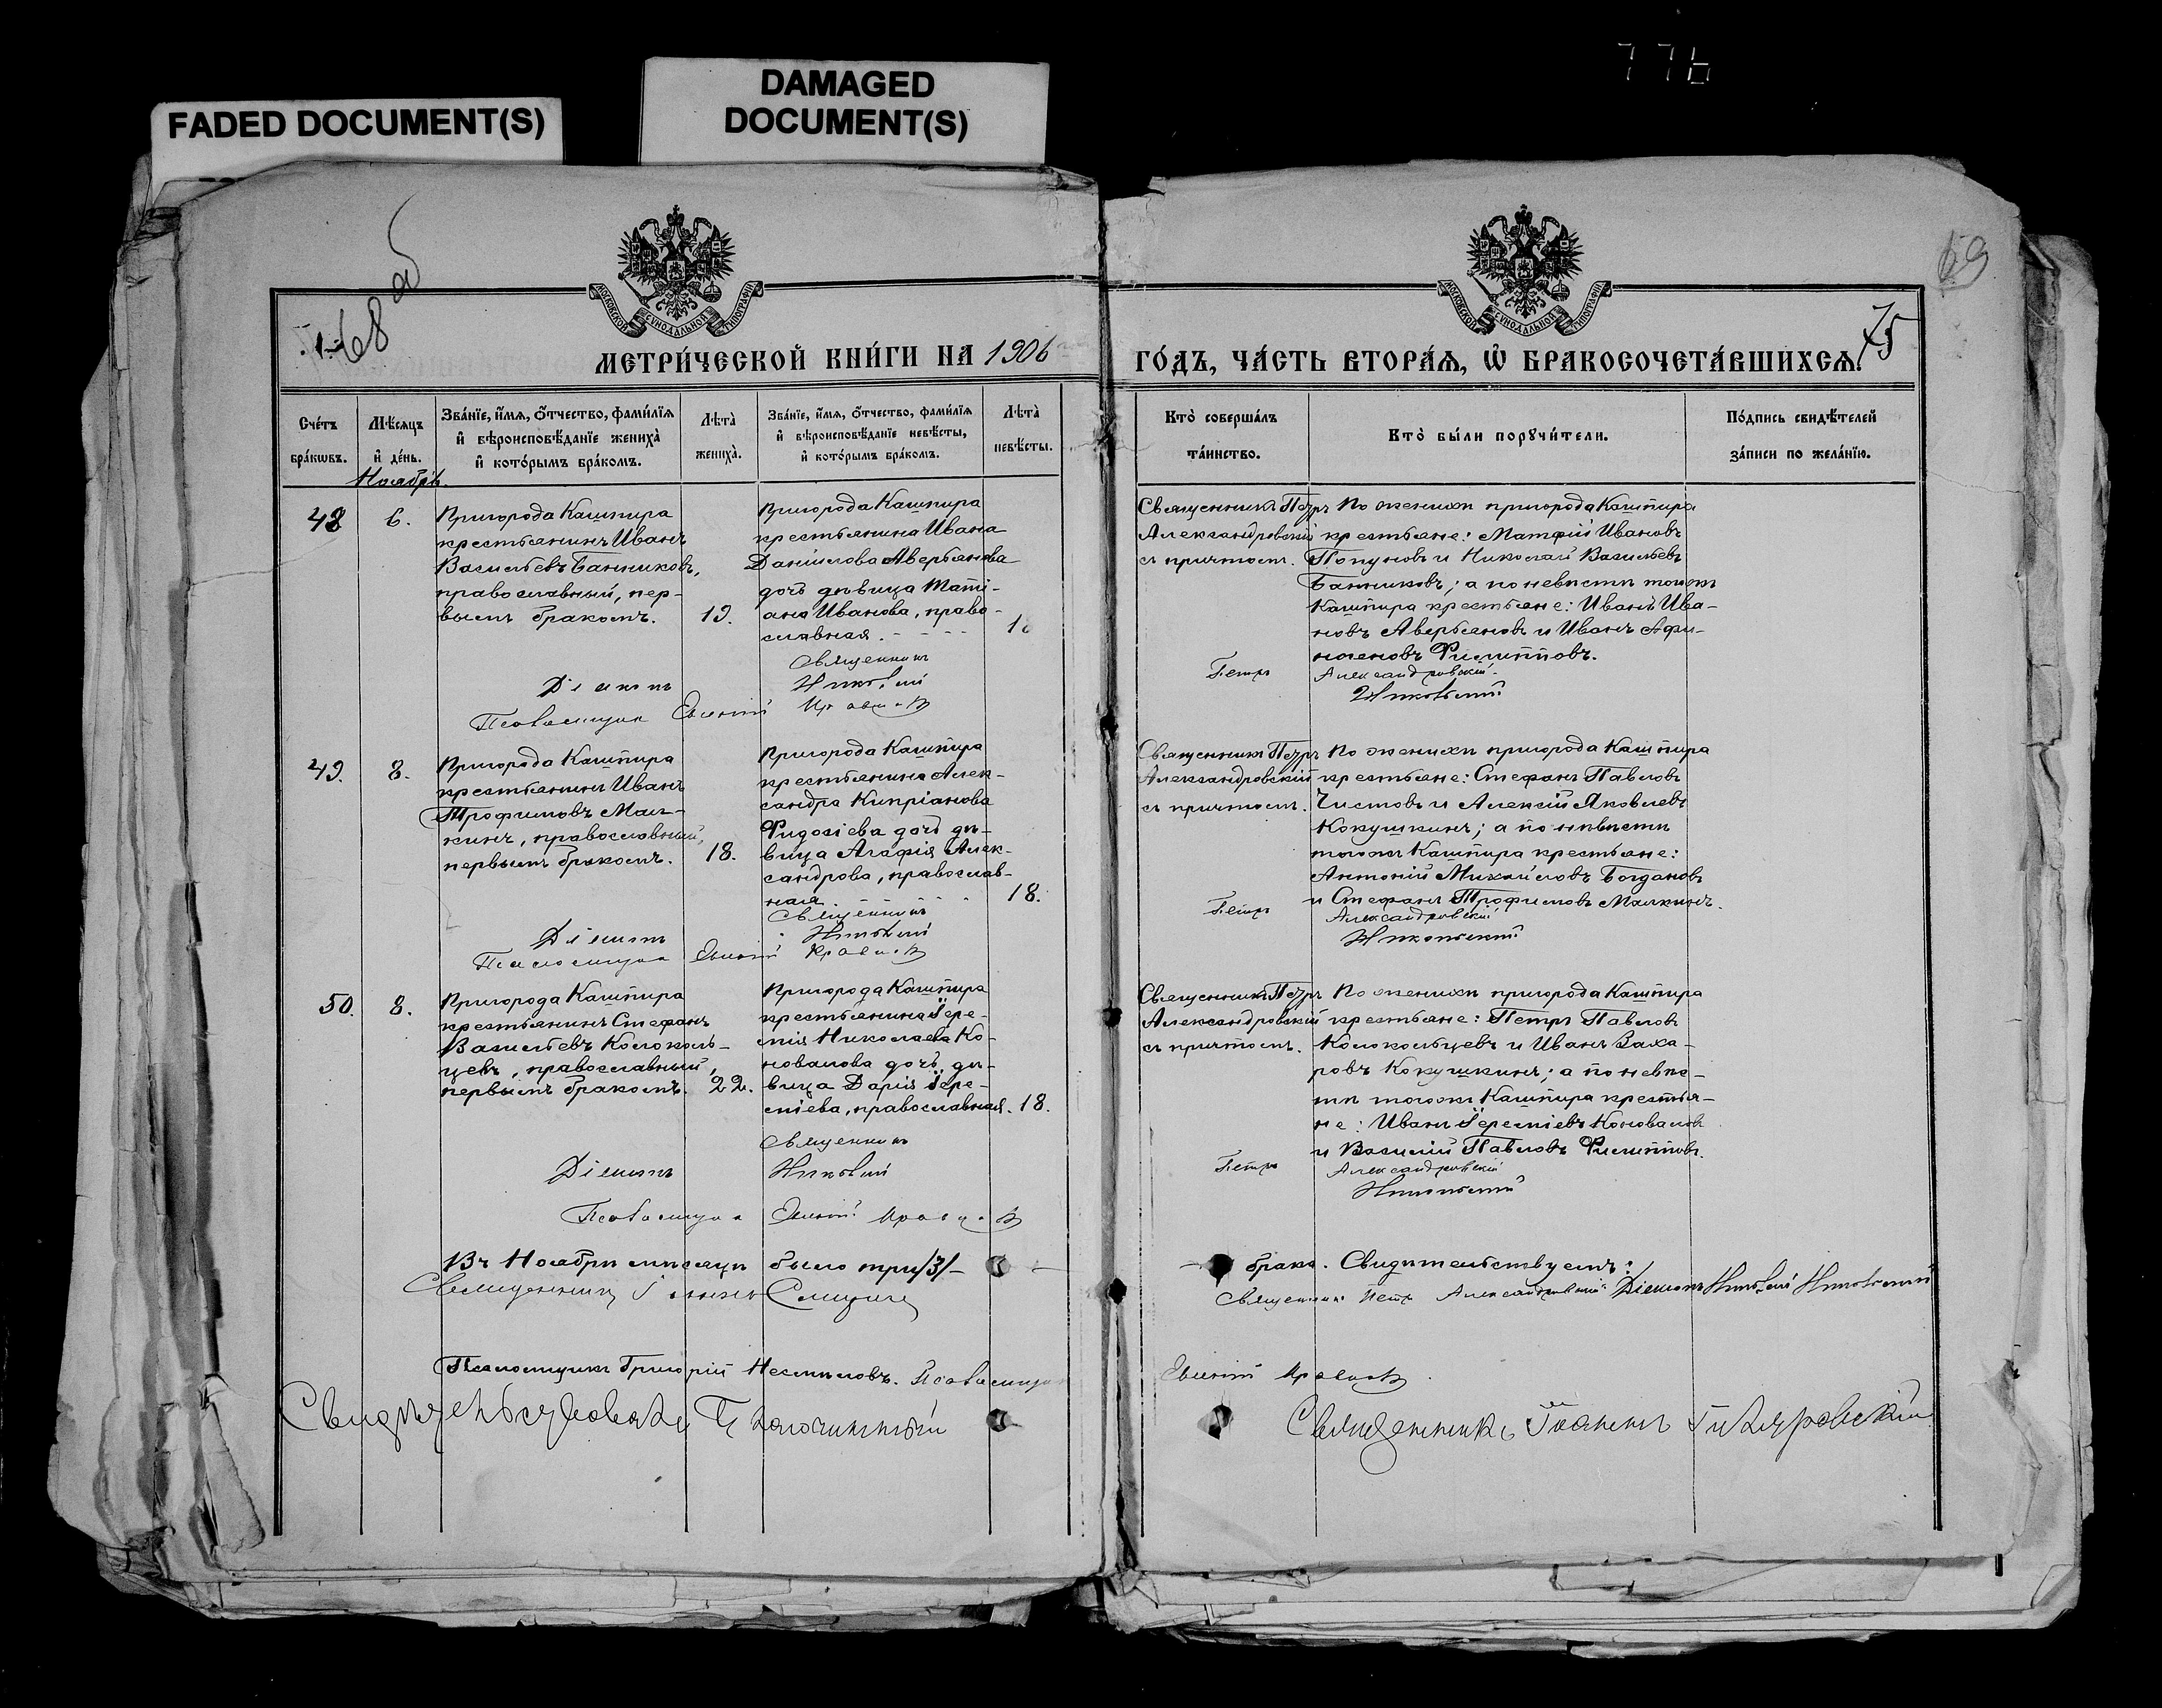 776
FADED DOCUMENT(S)
DAMAGED
DOCUMENT(S)
68 об
69
75
МОСКОВСКОЙ СѴНОДАЛЬНОЙ ТИПОГРАФІИ
МОСКОВСКОЙ СѴНОДАЛЬНОЙ ТИПОГРАФІИ
МЕТРИ́ЧЕСКОЙ КНИ́ГИ НА 1906
ГО́ДЪ, ЧА́СТЬ ВТОРА́Я, Ѡ҆ БРАКОСОЧЕТА́ВШИХСЯ.
Сче́тъ
бра́кѡвъ.
Мѣ́сяцъ
и҆ де́нь.
Зва́нїе, и҆́мя, ѻ҆́тчество, фами́лїя
и҆ вѣроисповѣ́данїе жениха̀
и҆ кото́рымъ бра́комъ.
Лѣта̀
жениха̀.
Зва́нїе, и҆́мя, ѻ҆́тчество, фами́лїя
и҆ вѣроисповѣ́данїе невѣ́сты,
и҆ кото́рымъ бра́комъ.
Лѣта̀
невѣ́сты.
Кто̀ соверша́лъ
та́инство.
Кто̀ бы́ли порꙋчи́тели.
По́дпись свидѣ́телей
за́писи по жела́нїю.
Ноябрь.
48
6.
Пригорода Кашпира
крестьянинъ Иванъ
Васильевъ Банниковъ,
православный, пер-
вымъ бракомъ.
19.
Пригорода Кашпира
крестьянина Ивана
Даніилова Аверьянова
дочь дѣвица Тати-
ана Иванова, право-
славная.
Священникъ Петръ
Александровскій
съ причтомъ.
По женихѣ пригорода Кашпира
крестьяне: Матфій Ивановъ
Попуновъ и Николай Васильевъ
Банниковъ; а по невѣстѣ тогожъ
Кашпира крестьяне: Иванъ Ива-
новъ Аверьяновъ и Иванъ Афи-
ногеновъ Филипповъ.
Священникъ
Петръ Александровскій
Діаконъ Николай Никольскій
Псаломщикъ Евгеній
49.
8.
Пригорода Кашпира
крестьянинъ Иванъ
Трофимовъ Мал-
кинъ, православный,
первымъ бракомъ.
18.
Пригорода Кашпира
крестьянина Алек-
сандра Кипріанова
Фидосіева дочь дѣ-
вица Агафія Алек-
сандрова, православ-
ная
18.
Священникъ Петръ
Александровскій
съ причтомъ.
По женихѣ пригорода Кашпира
крестьяне: Стефанъ Павловъ
Чистовъ и Алексій Яковлевъ
Кокушкинъ; а по невѣстѣ
тогожъ Кашпира крестьяне:
Антоній Михайловъ Богдановъ
и Стефанъ Трофимовъ Малкинъ.
Священникъ
Петръ Александровскій
Діаконъ Николай Никольскій
Псаломщикъ Евгеній
50.
8.
Пригорода Кашпира
крестьянинъ Стефанъ
Васильевъ Колоколь-
цевъ, православный,
первымъ бракомъ.
22.
Пригорода Кашпира
крестьянина Іере-
мія Николаева Ко-
новалова дочь, дѣ-
вица Дарія Іере-
міева, православная.
18.
Священникъ Петръ
Александровскій
съ причтомъ.
По женихѣ пригорода Кашпира
крестьяне: Петръ Павловъ
Колокольцевъ и Иванъ Заха-
ровъ Кокушкинъ; а по невѣс-
тѣ тогожъ Кашпира крестья-
не: Иванъ Іереміевъ Коноваловъ
и Василій Павловъ Филипповъ.
Священникъ
Петръ Александровскій
Діаконъ Николай Никольскій
Псаломщикъ Евгеній
Въ Ноябрѣ мѣсяцѣ было три /3/ брака. Свидѣтельствуемъ:
Священникъ
Священникъ Петръ Александровскій Діаконъ Николай Никольскій
Псаломщикъ Григорій Несмѣловъ. Псаломщикъ Евгеній
Свидѣтельствовалъ Благочинный Священникъ Іоаннъ